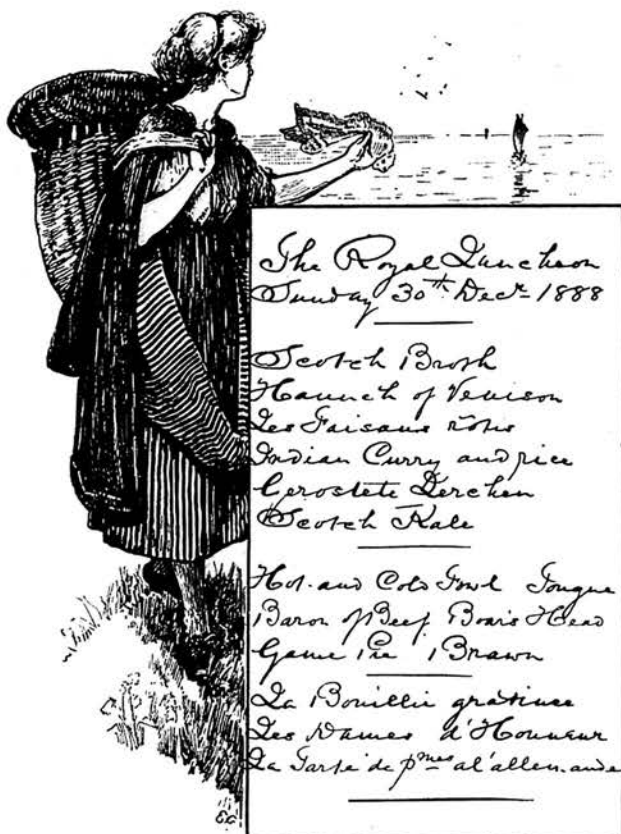 The Royal Luncheon
Sunday 30th. Decr. 1888
Scotch Broth
Haunch of Venison
Les Faisans rôtis
Indian Curry and rice
Gerostete Lerchen
Scotch Kale
Hot and Cold Fowl Tongue
Baron of Beef Boar's Head
Game Pie Brawn
La Bouillie gratinee
Les Dames d'Honneur
La Tarte de pmes a l'allemande